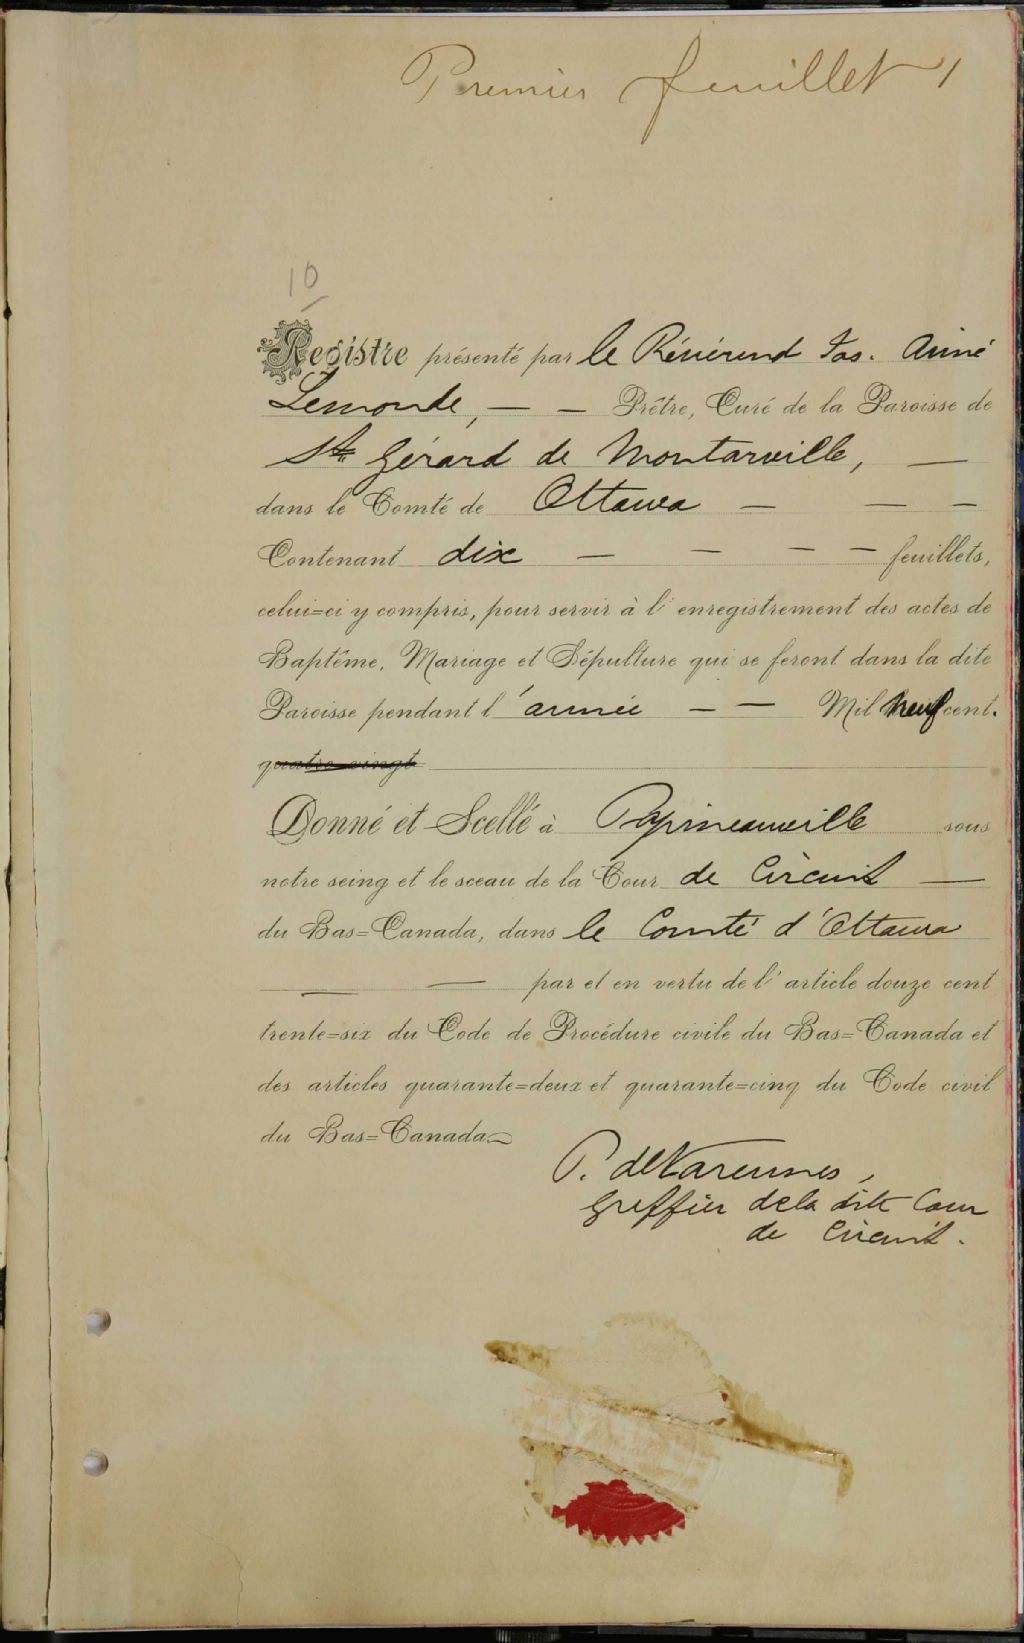 Premier feuillet 1
10
Registre présenté par le Révérend Jos. Aimé
Lemonde, — — Prêtre, Curé de la Paroisse de
St. Gérard de Montarville, —
dans le Comté de Ottawa — — —
Contenant dix — — — — feuillets,
celui=ci y compris, pour servir à l'enregistrement des actes de
Baptême, Mariage et Sépulture qui se feront dans la dite
Paroisse pendant l'année — — Mil neuf cent.
quatre-vingt
Donné et Scellé à Papineauville sous
notre seing et le sceau de la Cour de Circuit —
du Bas=Canada, dans le Comté d'Ottawa
— — par et en vertu de l'article douze cent
trente=six du Code de Procédure civile du Bas=Canada et
des articles quarante=deux et quarante=cinq du Code civil
du Bas=Canada.
P. deVarennes,
Greffier de la dite Cour
de Circuit.